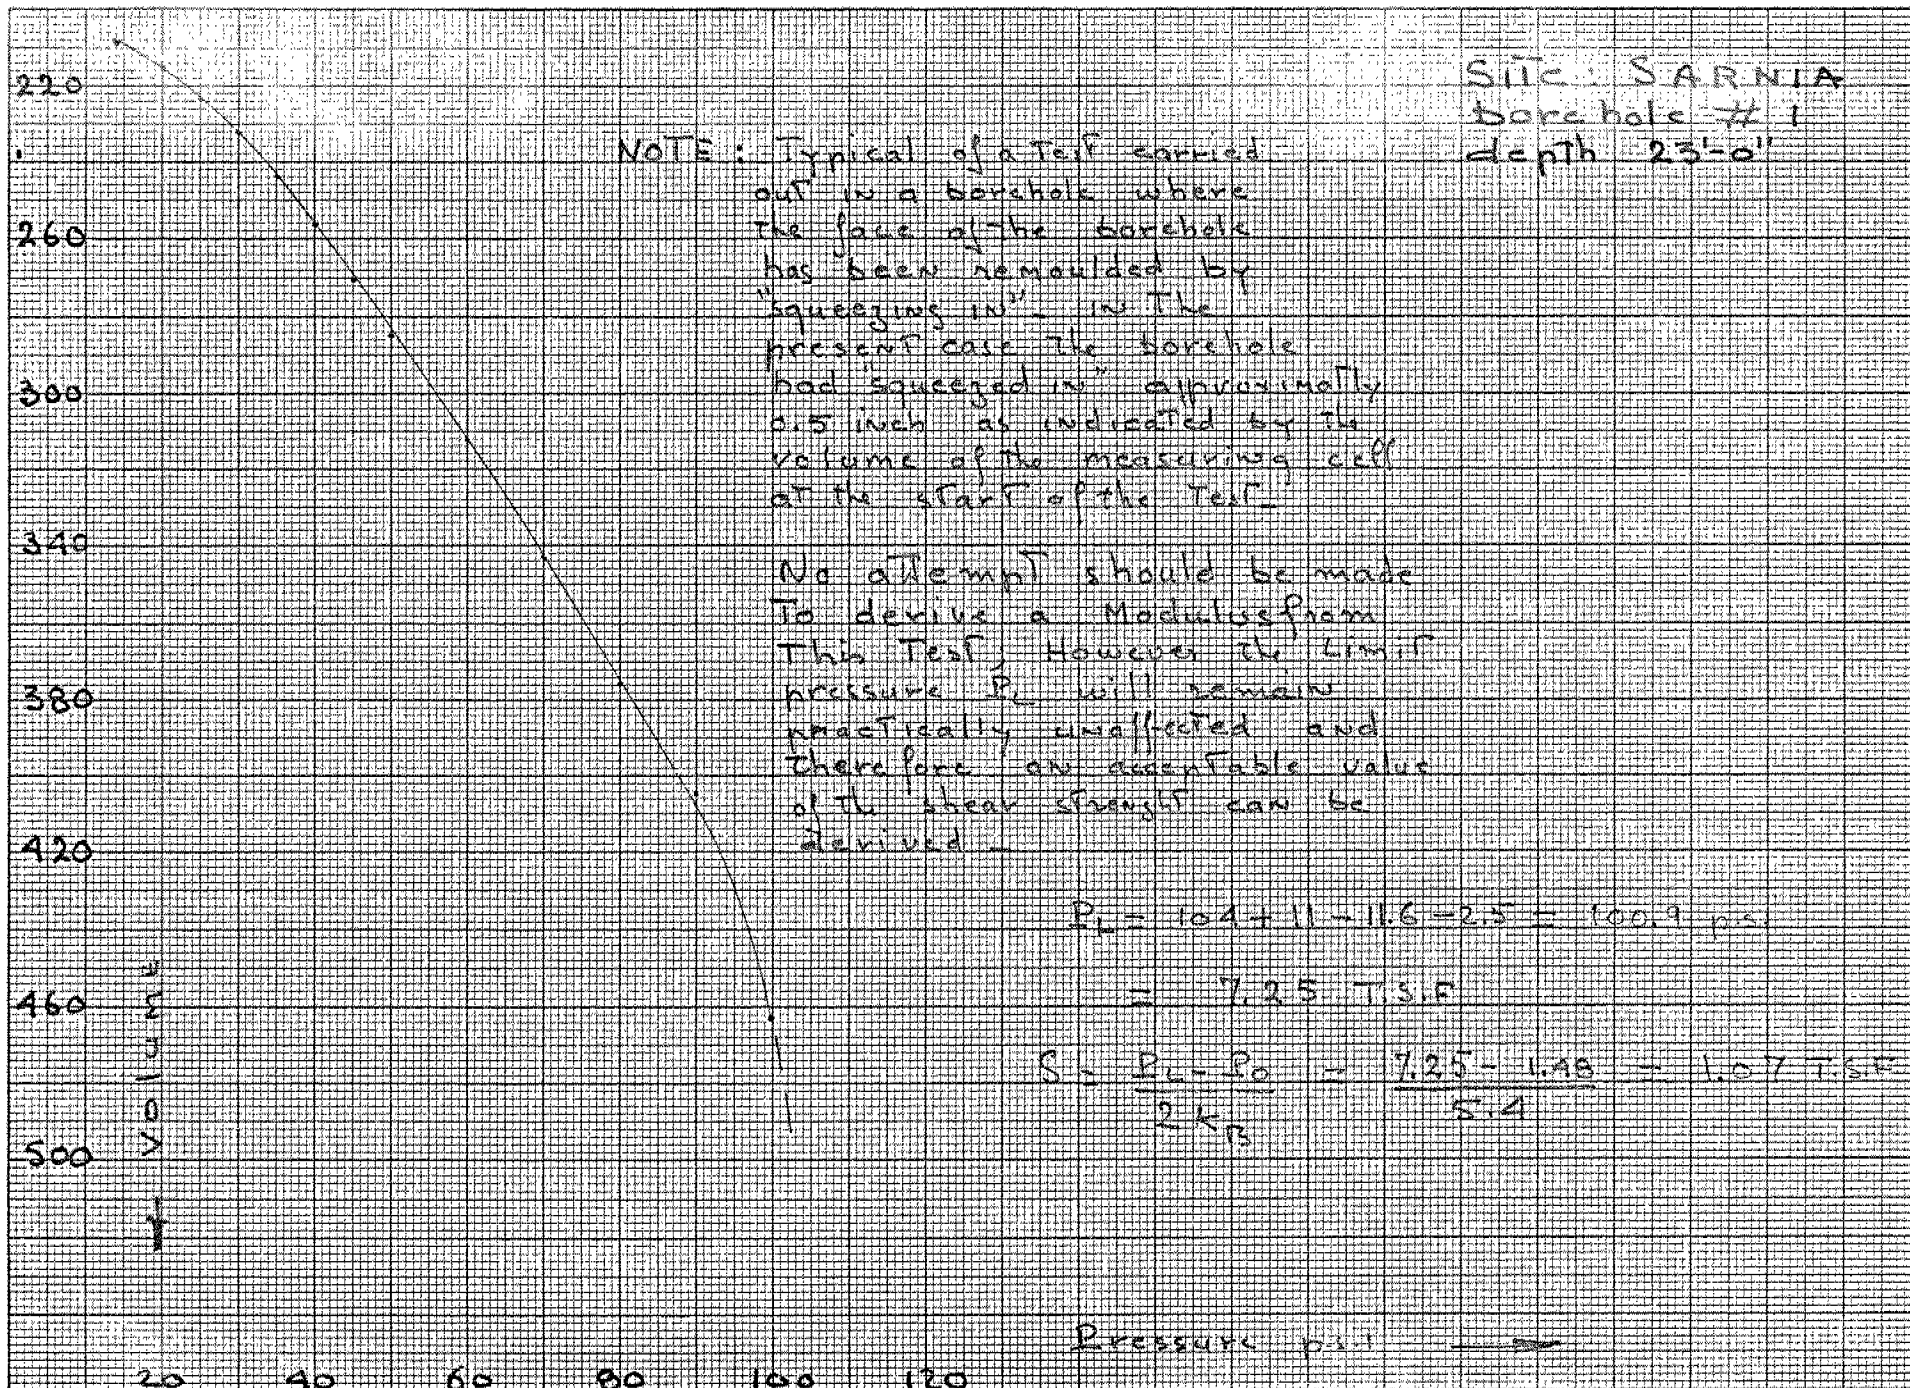 Site: SARNIA
borehole # 1
depth 23'-0"
NOTE: Typical of a Test carried
out in a borehole where
the face of the borehole
has been remoulded by
"squeezing in" - in the
present case the borehole
had "squeezed in" approximatly
0.5 inch as indicated by the
volume of the measuring cell
at the start of the Test_
No attempt should be made
To derive a Modulus from
This Test, However the Limit
pressure PL will remain
practically unaffected and
therefore an acceptable value
of the shear strenght can be
derived _
PL = 104 + 11 - 11.6 - 2.5 = 100.9 p.s.i
= 7.25 T.S.F
S = PL - PO / 2 KB = 7.25 - 1.48 / 5.4 = 1.07 T.S.F
220
260
300
340
380
420
460
500
Volume
Pressure p.s.i
20 40 60 80 100 120